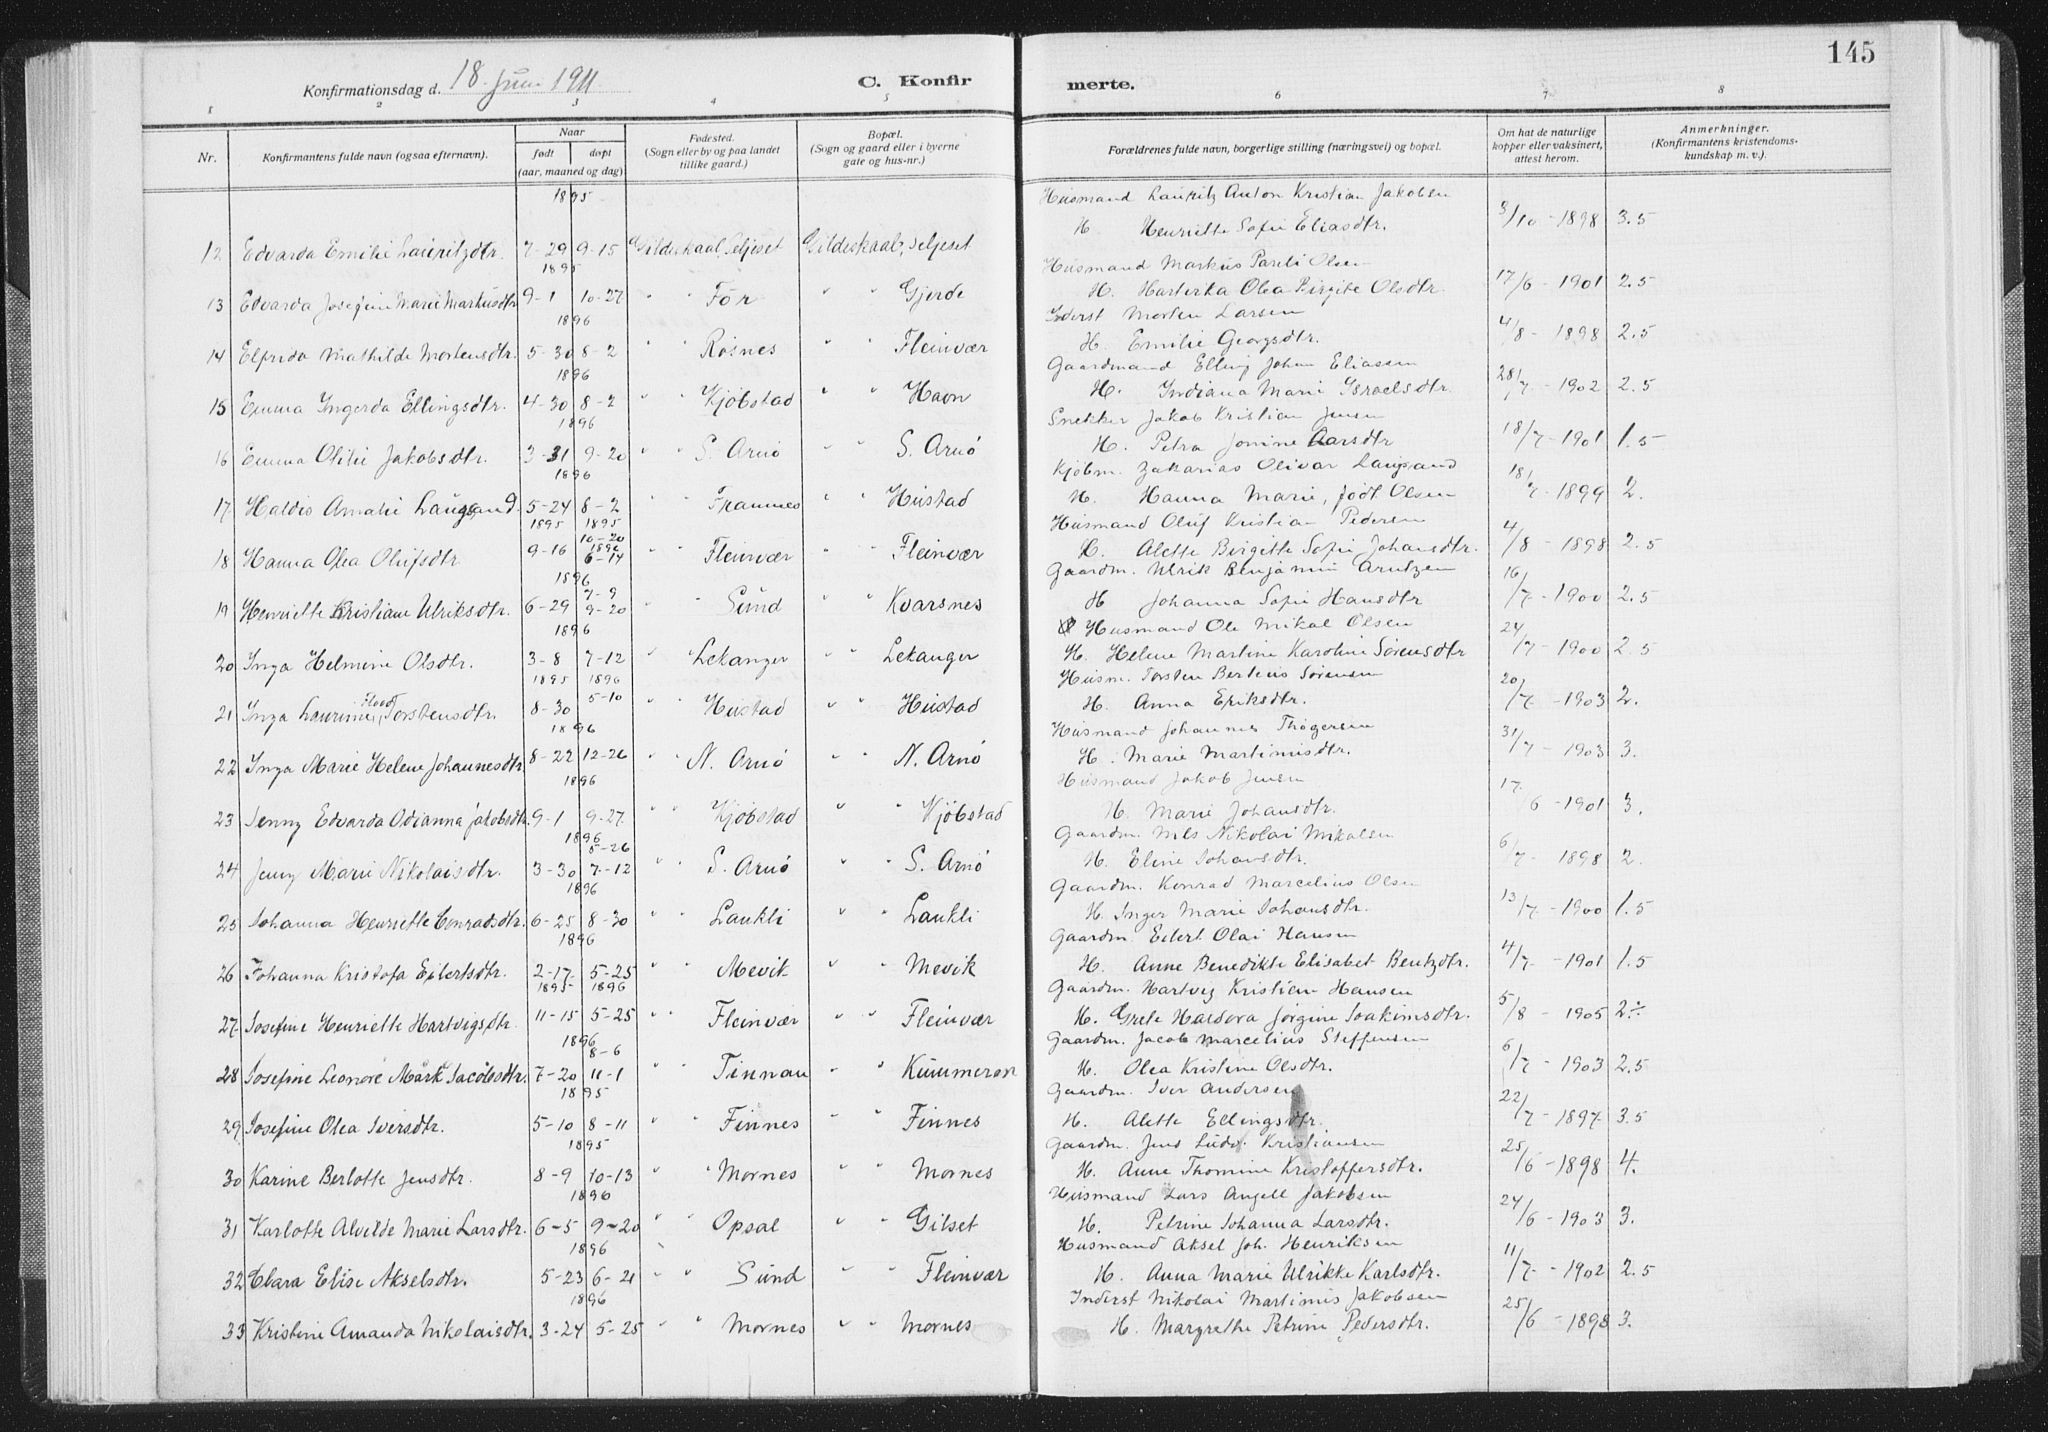 145
Konfirmationsdag d. 18. Juni 1911
C. Konfirmerte.
1 2 3 4 5 6 7 8
Nr.
Konfirmantens fulde navn (ogsaa efternavn).
Naar
født døpt
(aar, maaned og dag)
Fødested.
(Sogn eller by og paa landet
tillike gaard.)
Bopæl.
(Sogn og gaard eller i byerne
gate og hus-nr.)
Forældrenes fulde navn, borgerlige stilling (næringsvei) og bopæl.
Om hat de naturlige
kopper eller vaksinert,
attest herom.
Anmerkninger.
(Konfirmantens kristendoms-
kundskap m. v.).
1895 Husmand Lauritz Anton Kristian Jakobsen
12 Edvarda Emilie Lauritzdtr. 7-29 9-15 Gildeskaal, Seljeset Gildeskaal, Seljeset H. Henriette Sofie Eliasdtr. 3/10 - 1898 3.5
1895 Husmand Markus Pareli Olsen
13 Edvarda Josefine Marie Markusdtr 9-1 10-27 " " Før " " Gjerde H. Harterka Olea Birgite Olsdtr. 17/6 - 1901 2.5
1896 Inderst Morten Larsen
14 Elfrida Mathilde Mortensdtr. 5-30 8-2 " " Røsnes " " Fleinvær H. Emilie Georgsdtr. 4/8 - 1898 2.5
1896 Gaardmand Elling Johan Eliassen
15 Emma Ingerda Ellingsdtr. 4-30 8-2 " " Kjøbstad " " Havn H. Indiana Marie Israelsdtr. 28/7 - 1902 2.5
1896 Snekker Jakob Kristian Jensen
16 Emma Otilie Jakobsdtr. 3-31 9-20 " " S. Arnø " " S. Arnø H. Petra Jonine Larsdtr 18/7 - 1901 1.5
1896 Kjøbm. Zakarias Olivar Laugsand
17 Haldis Amalie Laugsand. 5-24 8-2 " " Framnes " " Hustad H. Hanna Marie, født Olsen 18/7 - 1899 2.
1895 1895 Husmand Oluf Kristian Pedersen
18 Hanna Olea Olufsdtr 9-16 10-20 1896 6-14 " " Fleinvær " " Fleinvær H. Alette Birgitte Sofie Johansdtr. 4/8 - 1898 2.5
1896 Gaardm. Ulrik Benjamin Arntzen
19 Henriette Kristiane Ulriksdtr. 6-29 7-9 9-20 " " Sund " " Kvarsnes H Johanna Sofie Hansdtr 16/7 - 1900 2.5
1896 Husmand Ole Mikal Olsen
20 Inga Helmine Olsdtr. 3-8 7-12 " " Lekanger " " Lekanger H. Helene Martine Karoline Sørensdtr 24/7 - 1900 2.5
1895 1896 Husm. Torsten Berteus Sørensen
21 Inga Laurine Flood Torstensdtr. 8-30 5-10 " " Hustad " " Hustad H. Anna Eriksdtr. 20/7 - 1903 2.
1896 Husmand Johannes Thøgersen
22 Inga Marie Helene Johannesdtr. 8-22 12-26 " " N. Arnø " " N. Arnø H. Marie Martinusdtr. 31/7 - 1903 3.
1896 Husmand Jakob Jensen
23 Jenny Edvarda Odianna Jakobsdtr. 9-1 9-27 " " Kjøbstad " " Kjøbstad H. Marie Johansdtr. 17/6 - 1901 3.
1896 Gaardm. Nils Nikolai Mikalsen
24 Jenny Marie Nikolaisdtr. 3-30 5-26 7-12 " " S. Arnø " " S. Arnø H. Eline Johansdtr. 6/7 - 1898 2.
1896 Gaardm. Konrad Marcelius Olsen
25 Johanna Henriette Conradsdtr. 6-25 8-30 " " Laukli " " Laukli H. Inger Marie Johansdtr. 13/7 - 1900 1.5
1896 Gaardm. Edert Olai Hansen
26 Johanna Kristofa Eilertsdtr. 2-17 5-25 " " Mevik " " Mevik H. Anne Benedikte Elisabet Bentzdtr. 4/7 - 1901 1.5
1895 1896 Gaardm. Hartvig Kristian Hansen
27 Josefine Henriette Hartvigsdtr. 11-15 5-25 " " Fleinvær " " Fleinvær H. Grete Hardora Jørgine Joakimsdtr. 5/8 - 1905 2÷
1896 Gaardm. Jacob Marcelius Steffensen
28 Josefine Leonore Mårk Jacobsdtr. 7-20 8-6 11-1 " " Finnau " " Kummeron H. Olea Kristine Olsdtr. 6/7 - 1903 2.5
1895 Gaardm. Iver Andersen
29 Josefine Olea Iversdtr. 5-10 8-11 " " Finnes " " Finnes H. Alette Ellingsdtr. 22/7 - 1897 3.5
1895 Gaardm. Jens Ludv. Kristiansen
30 Karine Berlotte Jensdtr. 8-9 10-13 " " Mornes " " Mornes H. Anne Thomine Kristoffersdtr. 25/6 - 1898 4.
1896 Husmand Lars Angell Jakobsen
31 Karlotte Alvilde Marie Larsdtr. 6-5 9-20 " " Opsal " " Gilset H. Petrine Johanna Larsdtr. 24/6 - 1903 3.
1896 Husmand Aksel Joh. Henriksen
32 Clara Elise Akselsdtr. 5-23 6-21 " " Sund " " Fleinvær H. Anna Marie Ulrikke Karlsdtr. 11/7 - 1902 2.5
1896 Inderst Nikolai Martinus Jakobsen
33 Kristine Amanda Nikolaisdtr. 3-24 5-25 " " Mornes " " Mornes H. Margrethe Petrine Pedersdtr. 25/6 - 1898 3.